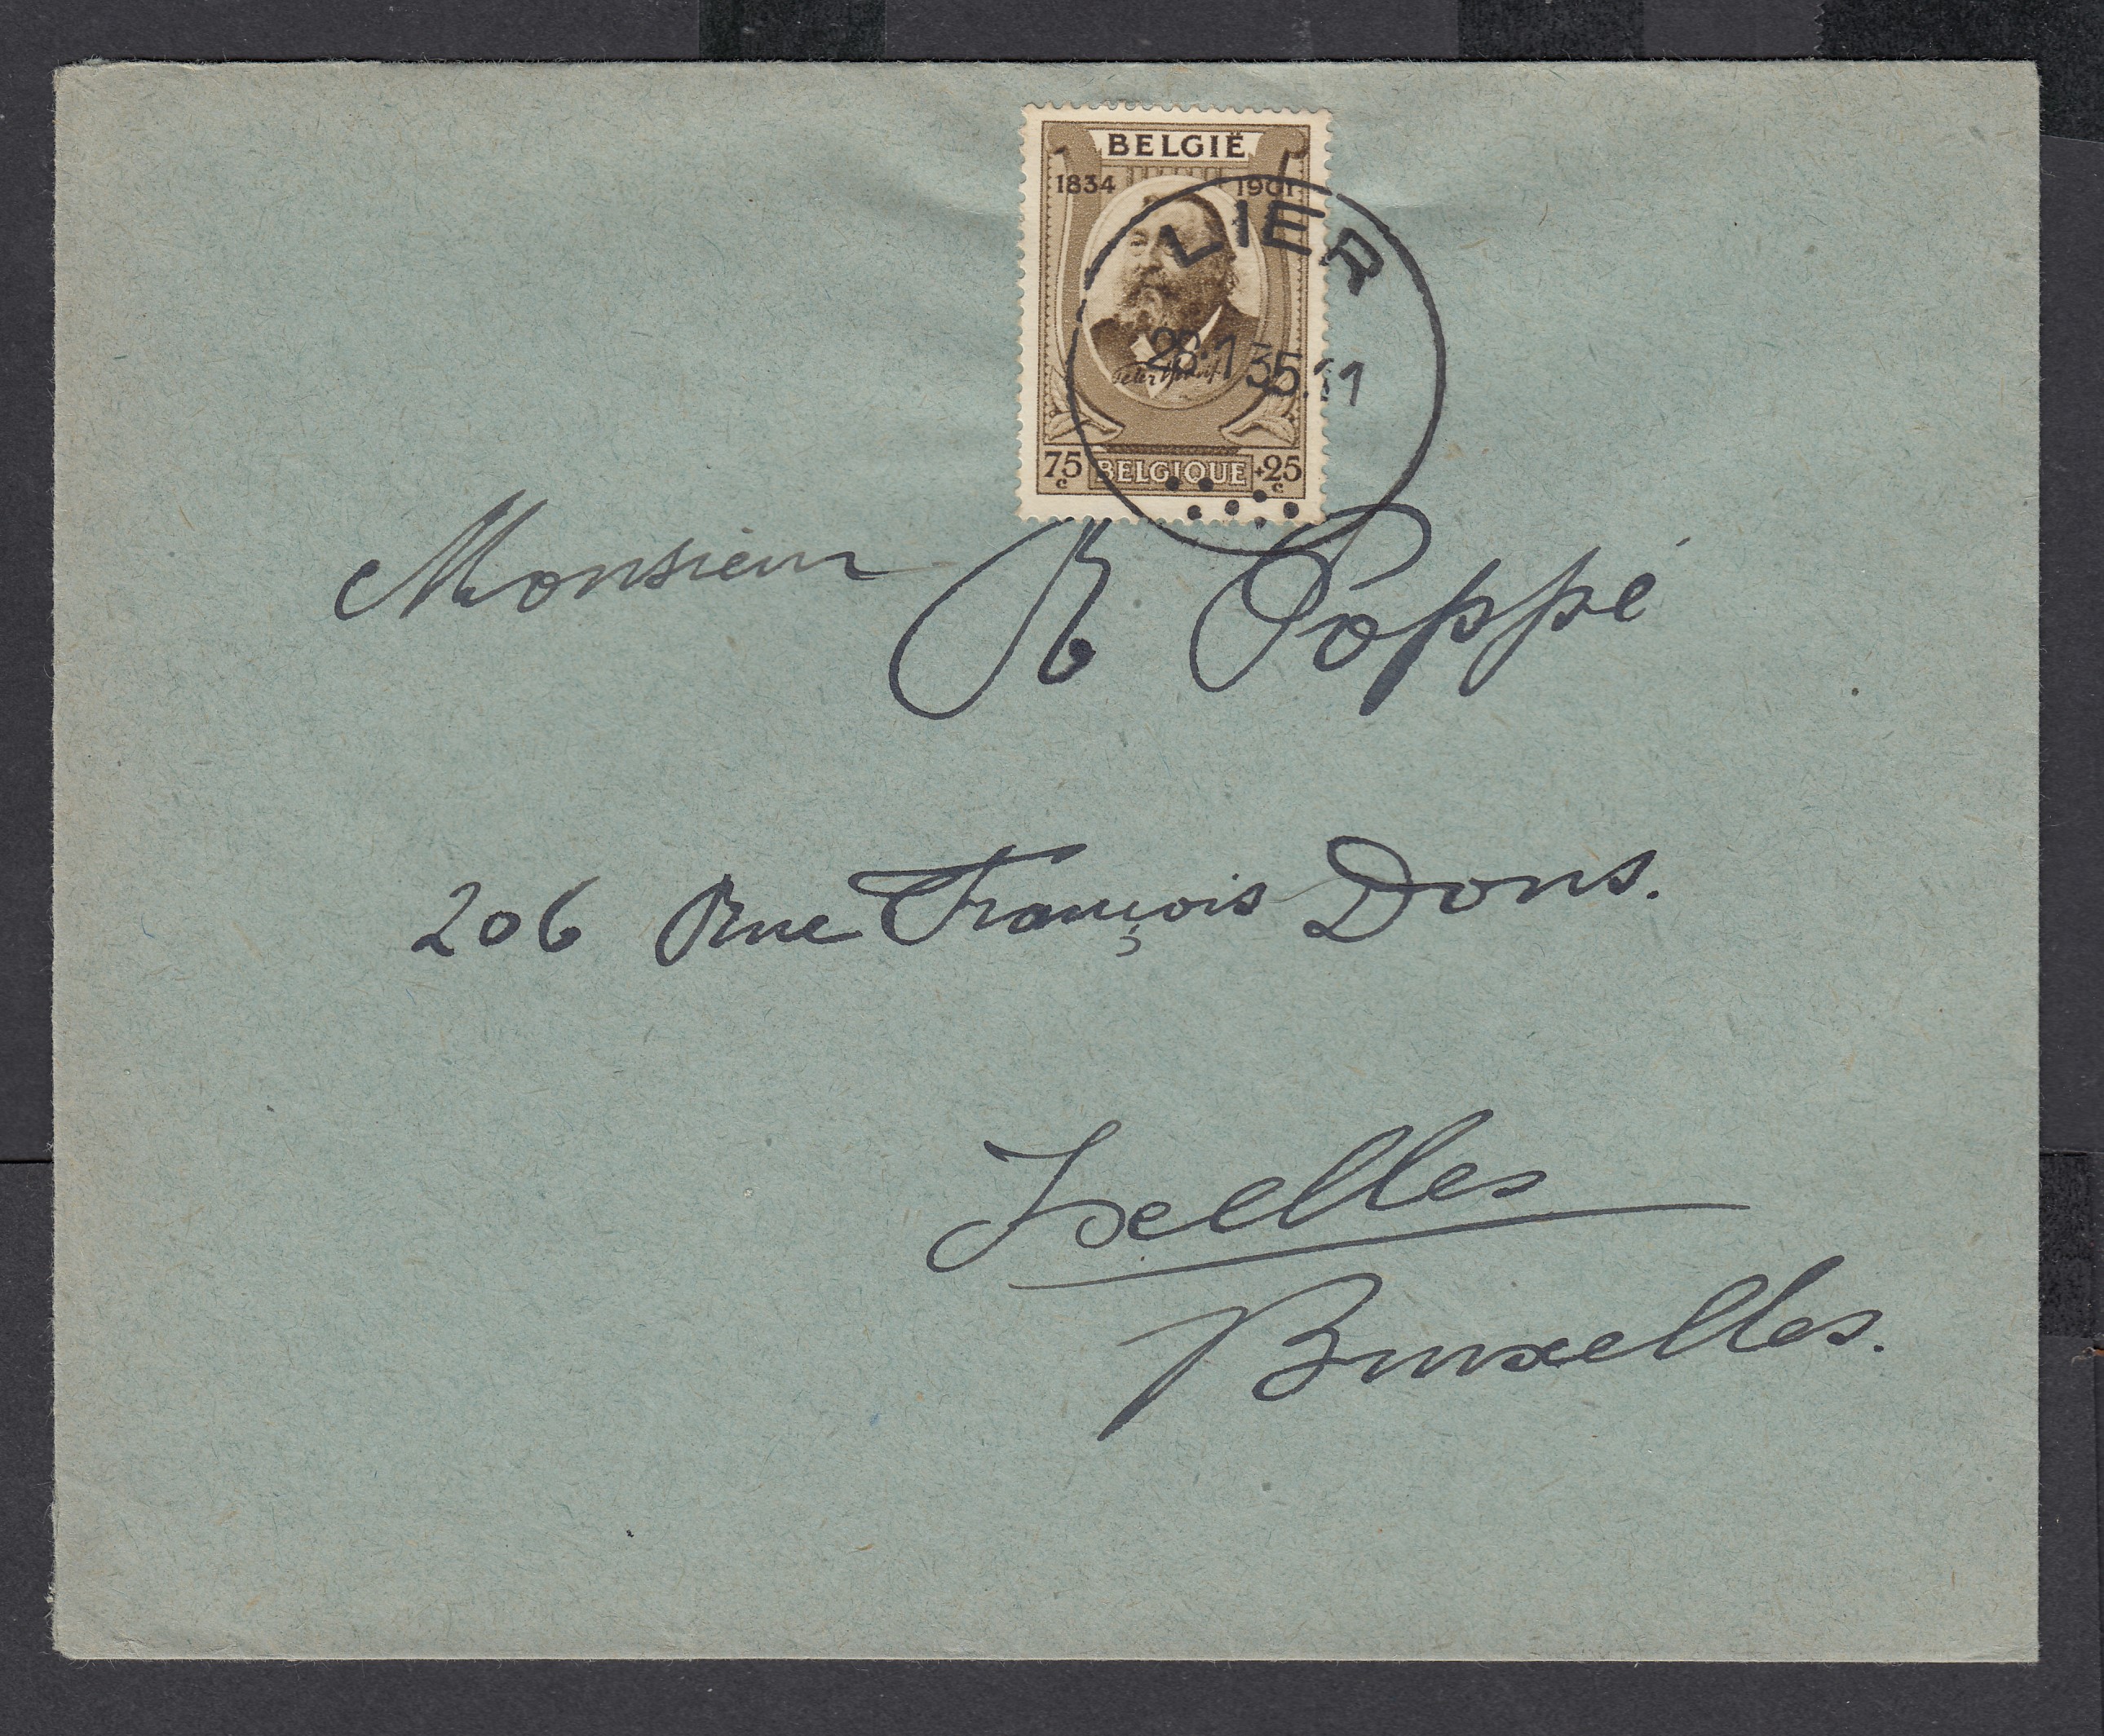 BELGIË
1834 1901
Peter Benoit
75c BELGIQUE +25c
LIER
28.1 35.11
Monsieur R Poppé
206 Rue François Dons.
Ixelles
Bruxelles.